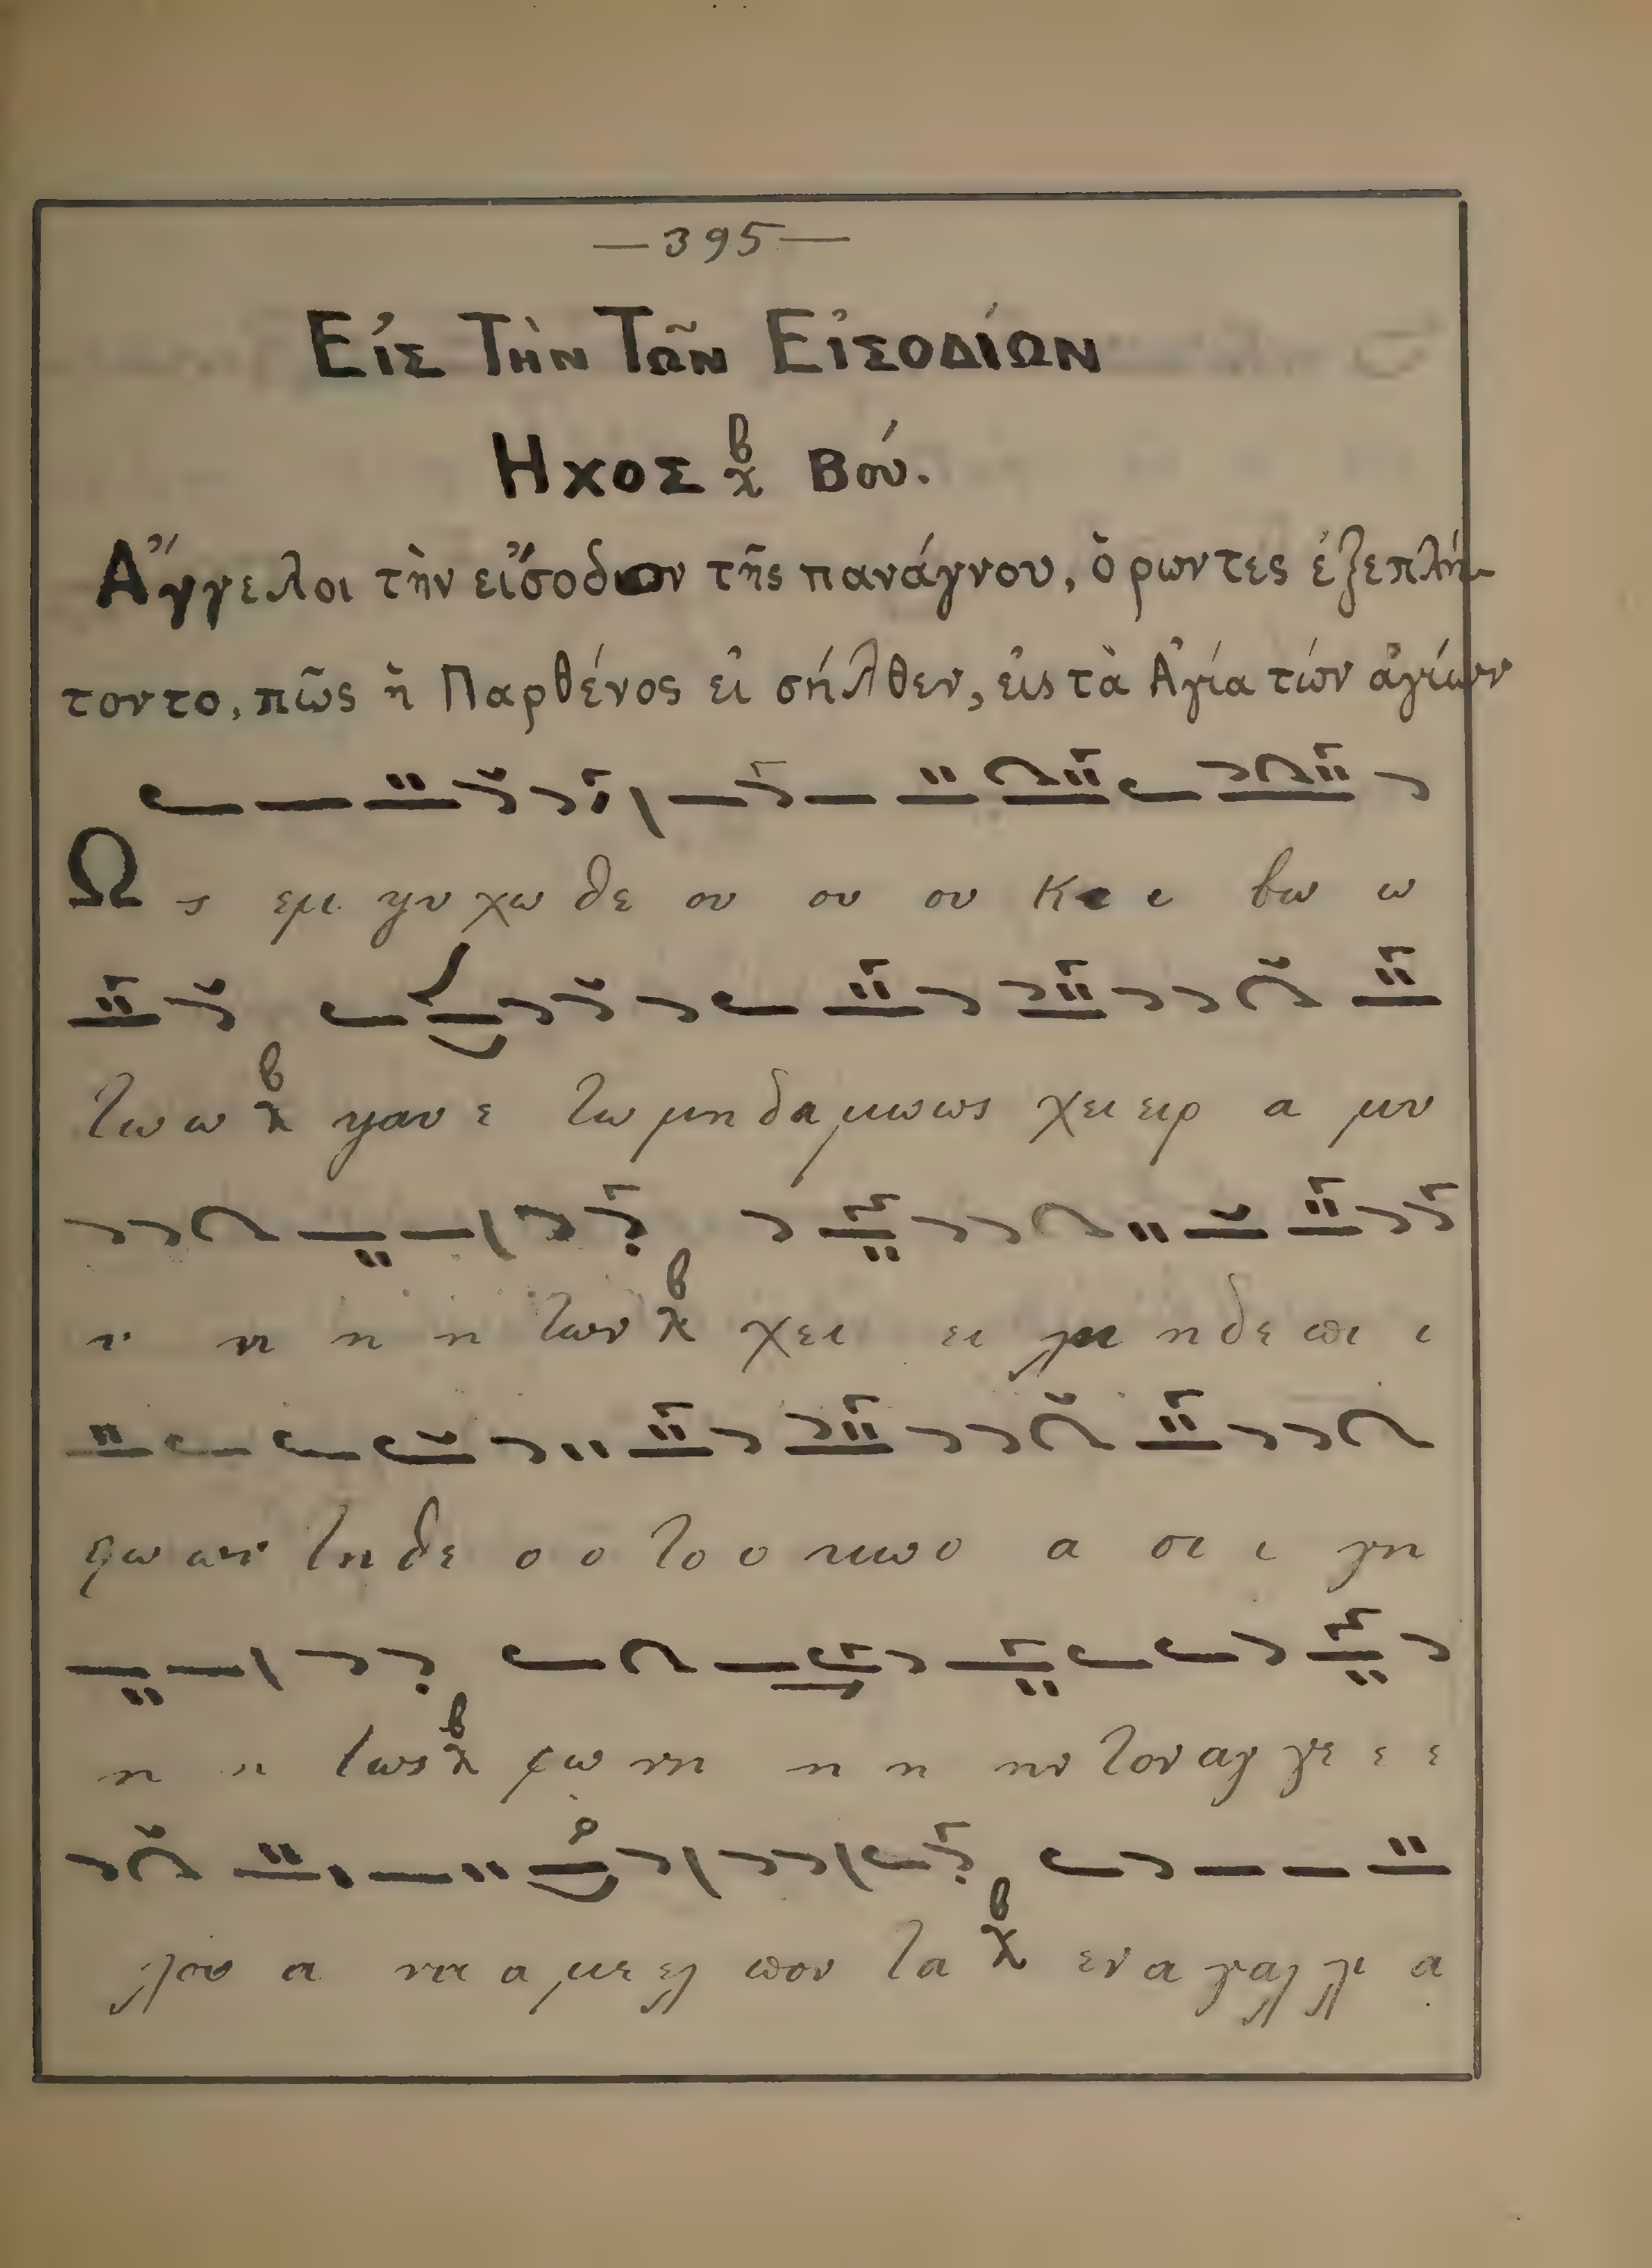 —395—
Εἰς Τὴν Τῶν Εἰσοδίων
Ηχος β Βού.
Ἄγγελοι τὴν εἴσοδον τῆς πανάγνου, ὁρωντες ἐξεπλήτ-
τοντο, πῶς ἡ Παρθένος εἰ σήλθεν, εἰς τὰ Ἁγία τῶν ἁγίων
Ως εμ ψυ χω θε ου ου ου Κι ι βω ω
τω ω β ψαυ ε τω μη δα μω ως χει ειρ α μυ
υ η η η των β χει ει λη η δε πι ι
φω ων τη δε ο ο το ο κω ο α σι ι γη
η η τως β φω νη η η ην του αγ γε ε ε
λου α να α με ελ πον τα β εν α γαλ λι α